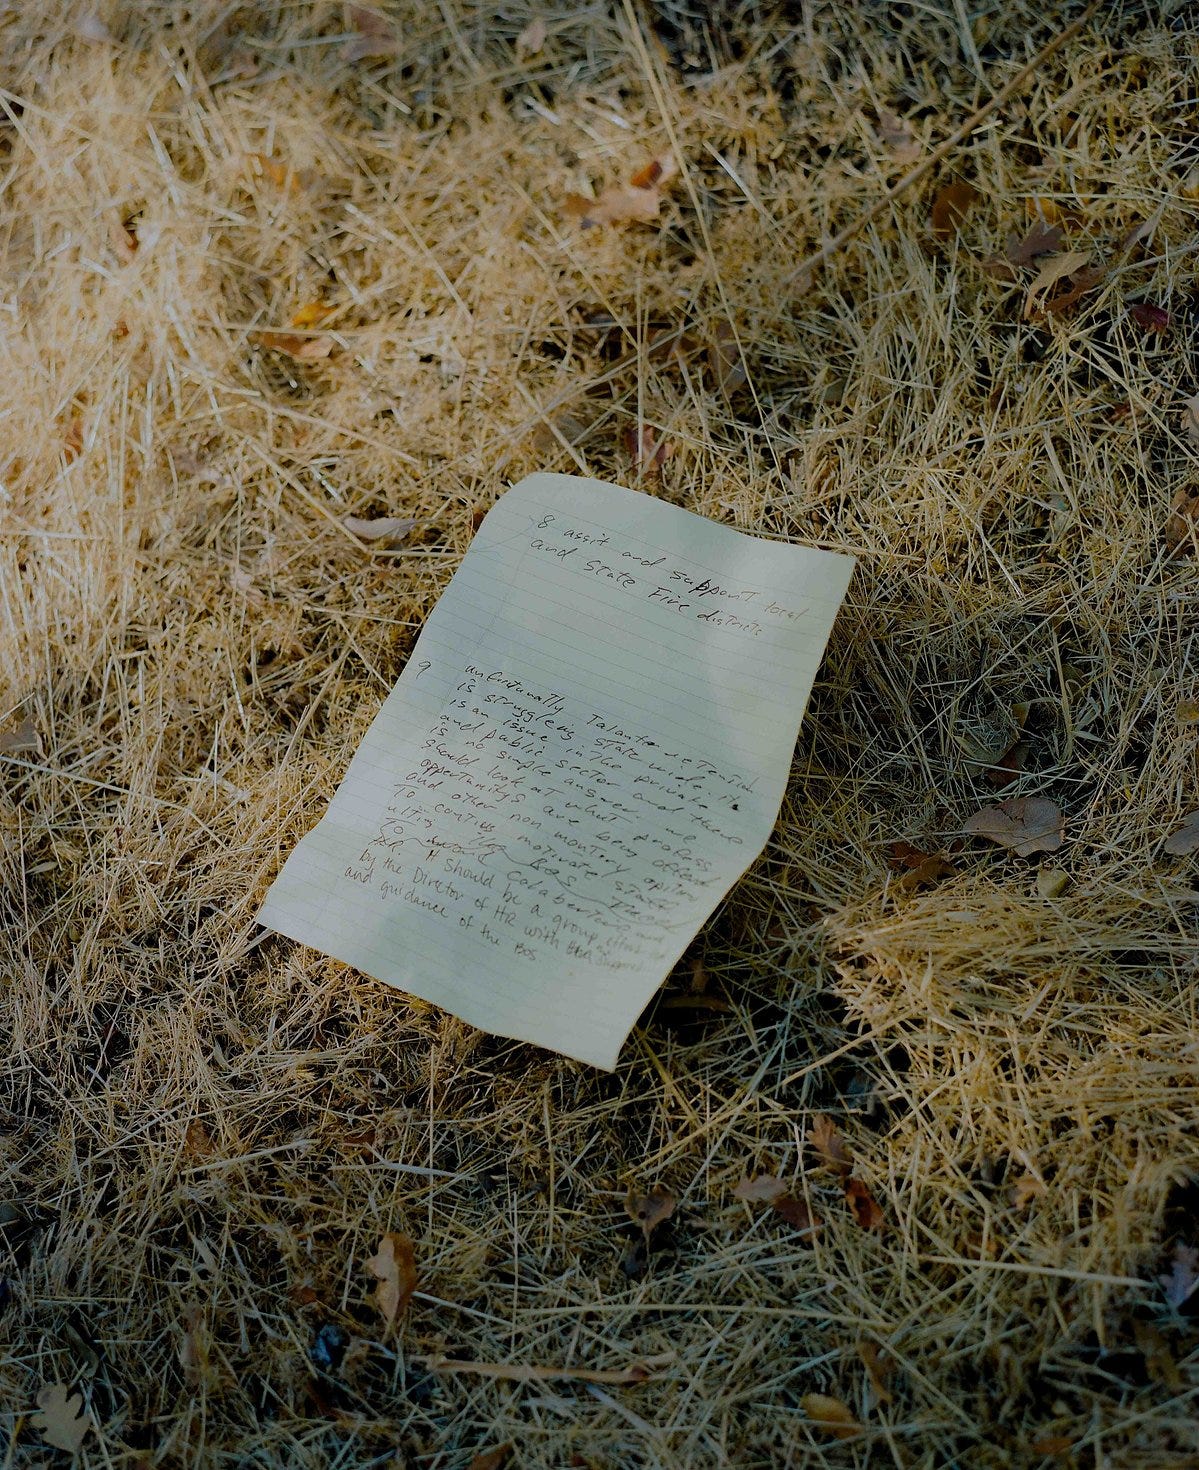 8 assit and support local
and State Fire districts
9 unfortunatly, Talent retention
is struggleing state wide. it
is an issue in the private
and public sector and there
is no simple answer. we
should look at what
opportunitys have been offered
and other non montery
To continu motivate staff
It Should be a group effort
by the Diretor of HR with
and guidance of the BOS